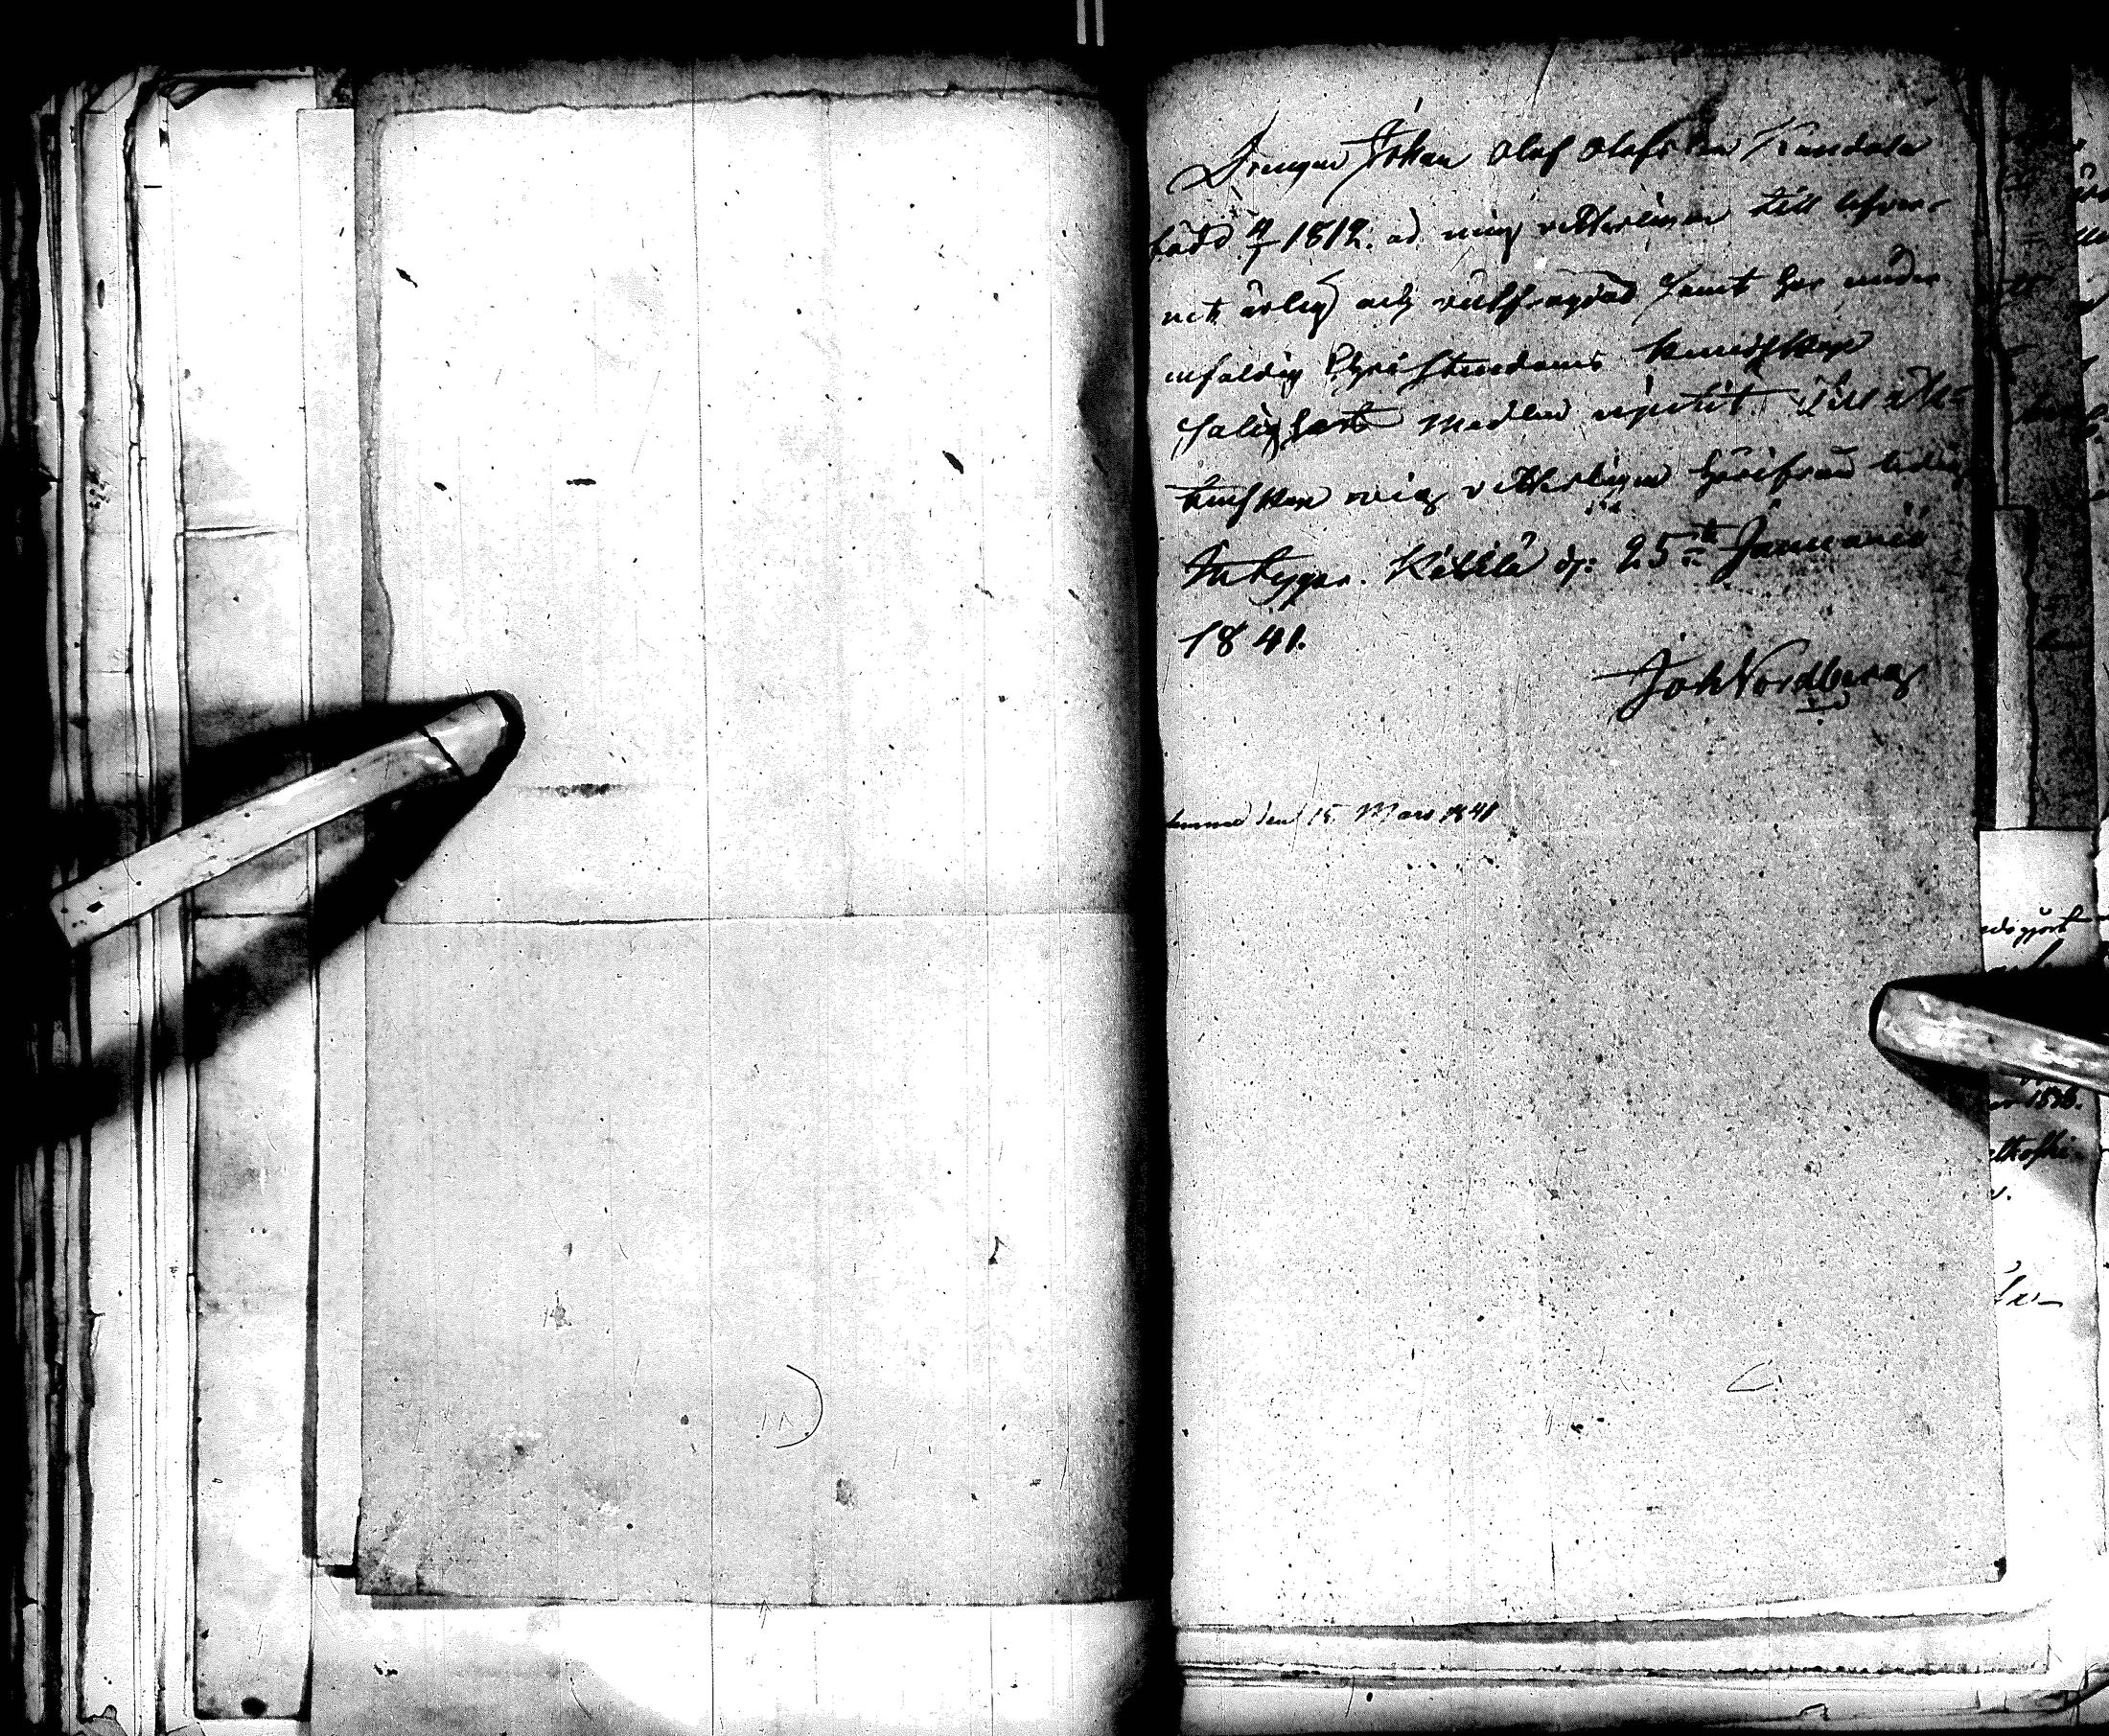 Drengen Johan Olof Olofsson Kandala
född 4/7 1812. är mig vetterligen till lefver-
net ärlig och välfrägdad samt har under
enfaldig Christendoms kunskap
salighets medlen njutit. Till äk-
tenskap mig vetterligen härifrån ledig
Intygar. Kittilä d: 25te Januarii
1841.
Joh Nordberg
den 15 Mars 1841